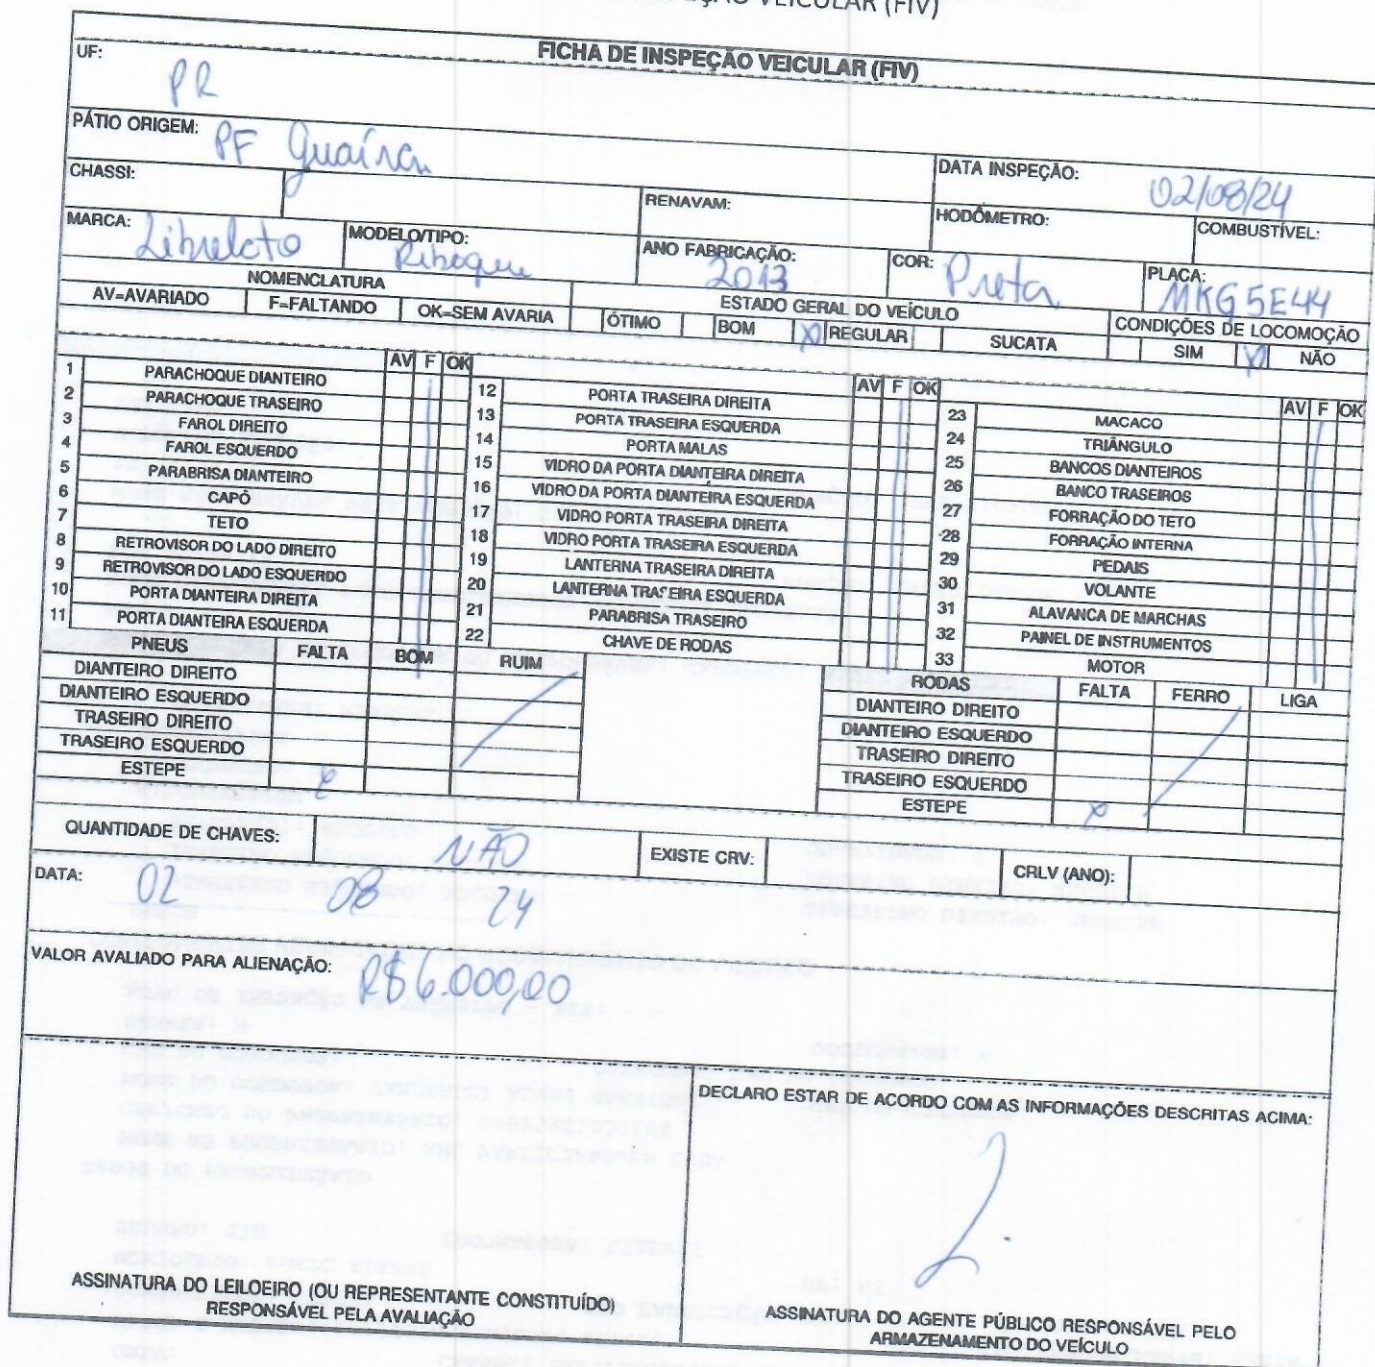 ÇÃO VEICULAR (FIV)
FICHA DE INSPEÇÃO VEICULAR (FIV)
UF: PR
PÁTIO ORIGEM: PF Guaíra
DATA INSPEÇÃO: 02/08/24
CHASSI:
RENAVAM:
HODÔMETRO:
COMBUSTÍVEL:
MARCA: Librelato
MODELO/TIPO: Riboque
ANO FABRICAÇÃO: 2013
COR: Preta
PLACA: MKG5E44
NOMENCLATURA
ESTADO GERAL DO VEÍCULO
CONDIÇÕES DE LOCOMOÇÃO
AV=AVARIADO F=FALTANDO OK=SEM AVARIA ÓTIMO BOM X REGULAR SUCATA SIM X NÃO
AV F OK
1 PARACHOQUE DIANTEIRO
2 PARACHOQUE TRASEIRO
3 FAROL DIREITO
4 FAROL ESQUERDO
5 PARABRISA DIANTEIRO
6 CAPÔ
7 TETO
8 RETROVISOR DO LADO DIREITO
9 RETROVISOR DO LADO ESQUERDO
10 PORTA DIANTEIRA DIREITA
11 PORTA DIANTEIRA ESQUERDA
AV F OK
12 PORTA TRASEIRA DIREITA
13 PORTA TRASEIRA ESQUERDA
14 PORTA MALAS
15 VIDRO DA PORTA DIANTEIRA DIREITA
16 VIDRO DA PORTA DIANTEIRA ESQUERDA
17 VIDRO PORTA TRASEIRA DIREITA
18 VIDRO PORTA TRASEIRA ESQUERDA
19 LANTERNA TRASEIRA DIREITA
20 LANTERNA TRASEIRA ESQUERDA
21 PARABRISA TRASEIRO
22 CHAVE DE RODAS
AV F OK
23 MACACO
24 TRIÂNGULO
25 BANCOS DIANTEIROS
26 BANCO TRASEIROS
27 FORRAÇÃO DO TETO
28 FORRAÇÃO INTERNA
29 PEDAIS
30 VOLANTE
31 ALAVANCA DE MARCHAS
32 PAINEL DE INSTRUMENTOS
33 MOTOR
PNEUS FALTA BOM RUIM
DIANTEIRO DIREITO
DIANTEIRO ESQUERDO
TRASEIRO DIREITO
TRASEIRO ESQUERDO
ESTEPE X
RODAS FALTA FERRO LIGA
DIANTEIRO DIREITO
DIANTEIRO ESQUERDO
TRASEIRO DIREITO
TRASEIRO ESQUERDO
ESTEPE X
QUANTIDADE DE CHAVES: NÃO
EXISTE CRV:
CRLV (ANO):
DATA: 02 08 24
VALOR AVALIADO PARA ALIENAÇÃO: R$6.000,00
DECLARO ESTAR DE ACORDO COM AS INFORMAÇÕES DESCRITAS ACIMA:
ASSINATURA DO LEILOEIRO (OU REPRESENTANTE CONSTITUÍDO)
RESPONSÁVEL PELA AVALIAÇÃO
ASSINATURA DO AGENTE PÚBLICO RESPONSÁVEL PELO
ARMAZENAMENTO DO VEÍCULO